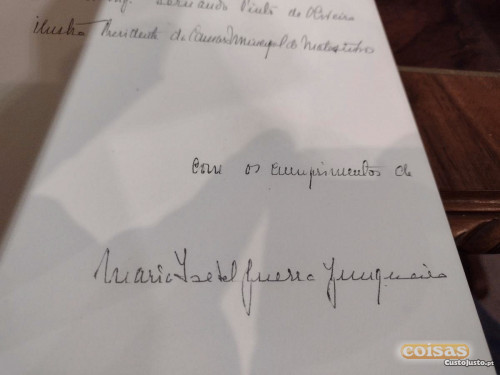 Eng. Fernando Pinto de Oliveira
ilustre Presidente da Camara Municipal de Matosinhos
Com os cumprimentos de
Maria Isabel Guerra Junqueiro
coisas
CustoJusto.pt